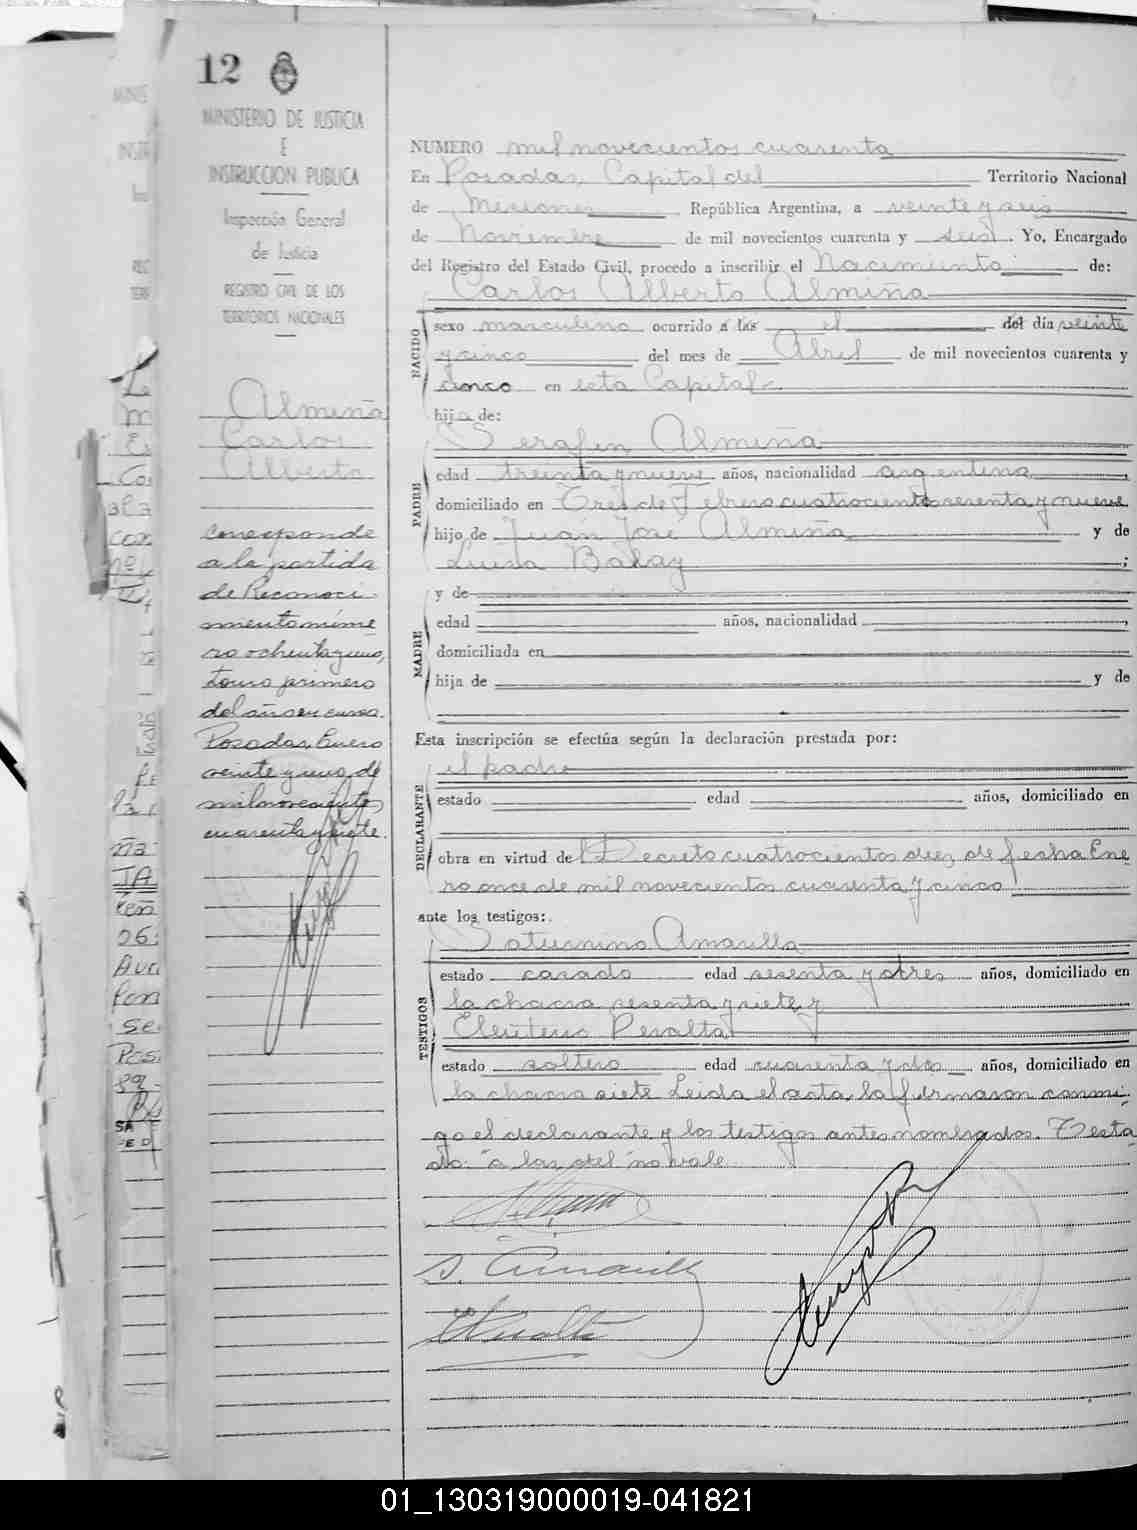 12
MINISTERIO DE JUSTICIA
E
INSTRUCCION PUBLICA
Inspección General
de Justicia
REGISTRO CIVIL DE LOS
TERRITORIOS NACIONALES
Almiña
Carlos
Alberto
corresponde
a la partida
de Reconoci
miento núme
ro ochenta y uno,
tomo primero
del año en curso.
Posadas, Enero
veinte y uno de
mil novecientos
cuarenta y siete.
NUMERO mil novecientos cuarenta
En Posadas, Capital del Territorio Nacional
de Misiones República Argentina, a veinte y seis
de Noviembre de mil novecientos cuarenta y seis. Yo, Encargado
del Registro del Estado Civil, procedo a inscribir el Nacimiento de:
Carlos Alberto Almiña
NACIDO
sexo masculino ocurrido a las el del día veinte
y cinco del mes de Abril de mil novecientos cuarenta y
cinco en esta Capital
hijo de:
PADRE
Serafin Almiña
edad treinta y nueve años, nacionalidad argentina,
domiciliado en Tres de Febrero cuatrocientos sesenta y nueve
hijo de Juan José Almiña y de
Luisa Balay;
MADRE
y de
edad años, nacionalidad
domiciliada en
hija de y de
Esta inscripción se efectúa según la declaración prestada por:
DECLARANTE
el padre
estado edad años, domiciliado en
obra en virtud del Decreto cuatrocientos diez de fecha Ene
ro once de mil novecientos cuarenta y cinco
ante los testigos:
TESTIGOS
Saturnino Amarilla
estado casado edad sesenta y tres años, domiciliado en
la chacra sesenta y siete y
Eleuterio Peralta
estado soltero edad cuarenta y dos años, domiciliado en
la chacra siete Leida el acta, la firmaron conmi-
go el declarante y los testigos antes nombrados. Testa-
do: "a las, del" no vale.
S. Amarilla
E Peralta
01_130319000019-041821